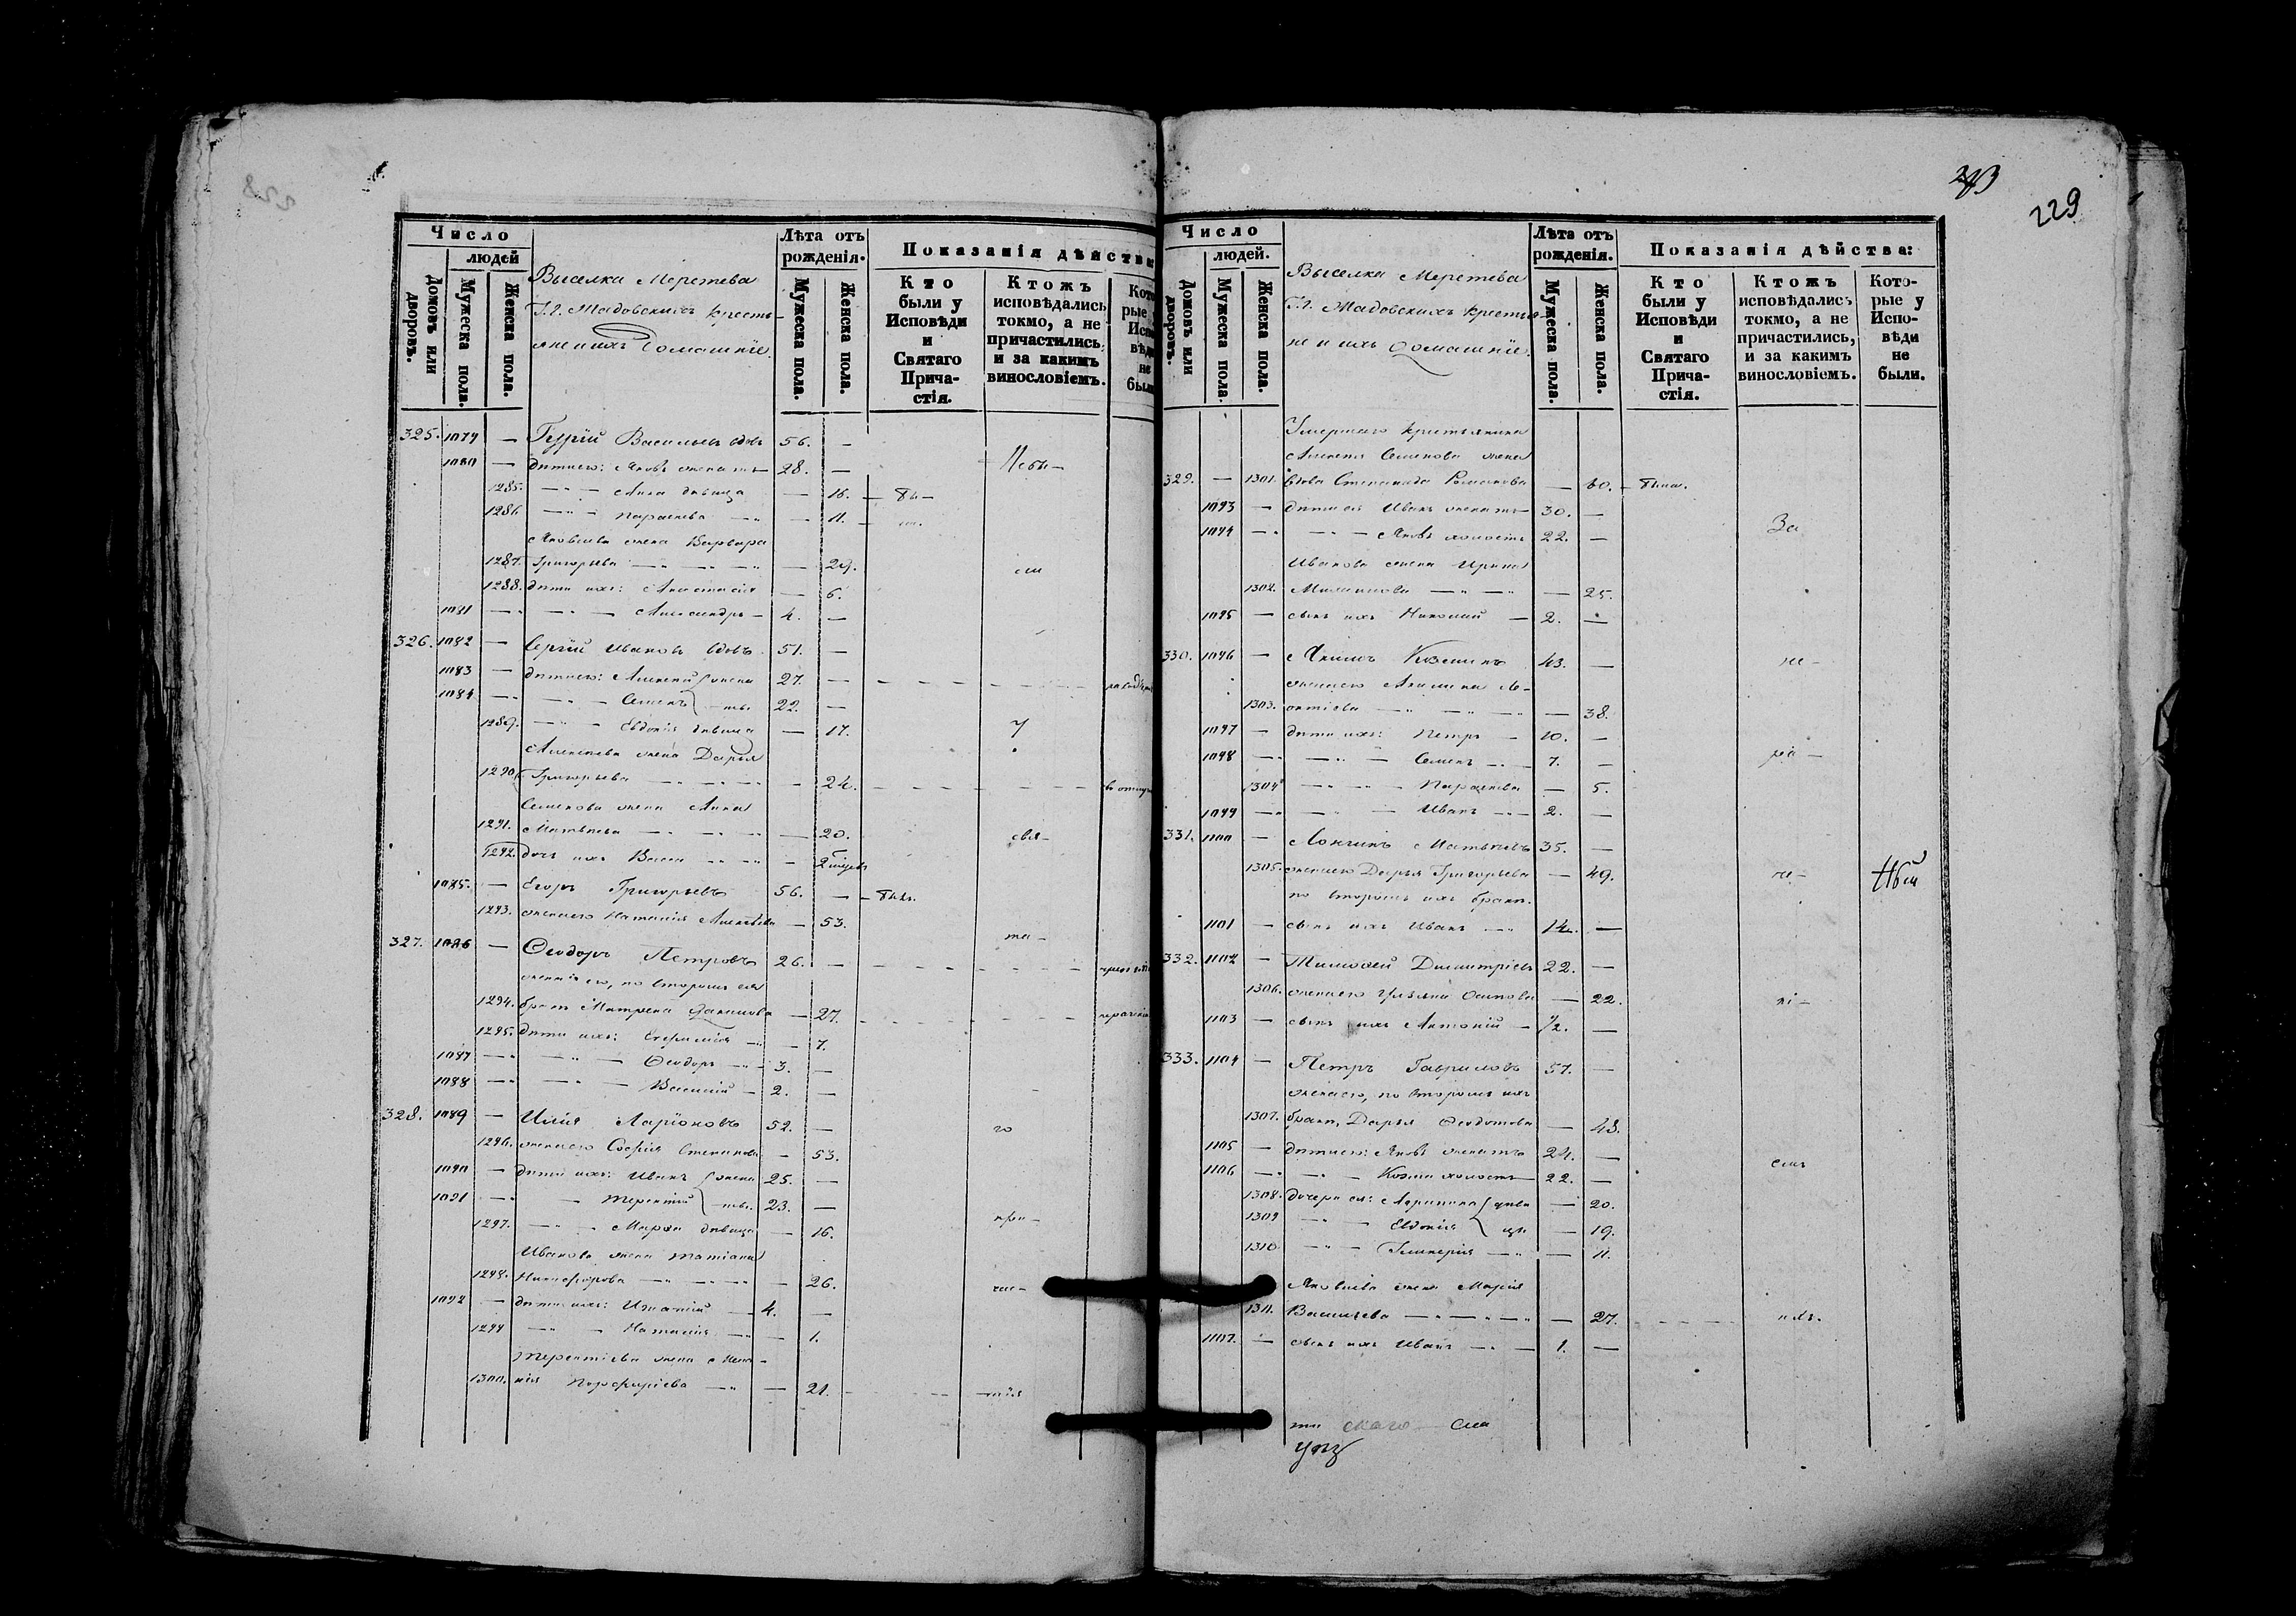 Число
людей
Домовъ или дворовъ.
Мужеска пола.
Женска пола.
Выселка Меретева
Г.г. Жадовскихъ кресть-
яне и ихъ домашніе.
Лѣта отъ рожденія.
Мужеска пола.
Женска пола.
Показанія дѣйства
Кто были у Исповѣди и Святаго Прича-стія.
Ктожъ исповѣдались токмо, а не причастились, и за какимъ винословіемъ.
325. 1079 — Гурій Васильевъ вдовъ 56. —
1080 — дѣти его: Яковъ женатъ 28. —
1285. — Анна дѣвица — 18. — бы —
1286. — Параскева — 11.
Яковлева жена Варвара
1287. Григорьева — 29.
1288. дѣти ихъ: Анастасія — 6.
1081 — Александръ — 4. —
326. 1082 — Сергій Ивановъ вдовъ 51. —
1083 — дѣти его: Алексій жена 27. —
1084 — Семенъ ты. 22. —
1289. — Евдокія дѣвица — 17.
Алексѣева жена Дарья
1290. Григорьева — 24.
Семенова жена Анна
1291. Матвѣева — 20.
1292. дочь ихъ Васса — 2
1085. — Егоръ Григорьевъ 56. —
1293. жена его Наталія Алексѣева — 53.
327. 1086 — Ѳеодоръ Петровъ 26. —
жена его, по второмъ ея
1294. бракѣ Матрена Данилова — 27.
1295. дѣти ихъ: Евфимія — 7.
1087 — Ѳеодоръ — 3. —
1088 — Василій — 2. —
328. 1089 — Илія Ларіоновъ 52. —
1296. жена его Софія Степанова — 53.
1090 — дѣти ихъ: Иванъ жена 25. —
1091 — Терентій ты. 23. —
1297. — Марѳа дѣвица — 16.
Иванова жена Татіана
1298. Никифорова — 26.
1092 — дѣти ихъ: Игнатій — 4. —
1299 — Наталія — 1.
Терентіева жена Ксен-
1300. нія Порфиріева — 21.
229
Число
людей.
Домовъ или дворовъ.
Мужеска пола.
Женска пола.
Выселка Меретева
Г.г. Жадовскихъ крестья-
не и ихъ домашніе.
Лѣта отъ рожденія.
Мужеска пола.
Женска пола.
Показанія дѣйства:
Кто были у Исповѣди и Святаго Прича-стія.
Ктожъ исповѣдались токмо, а не причастились, и за какимъ винословіемъ.
Кото-рые у Испо-вѣди не были.
Умершаго крестьянина
Алексея Семенова жена
329. — 1301. вдова Степанида Романова — 60. — была.
1093 — дѣти ея Иванъ женатъ 30. —
1094 — Яковъ холостъ 22. —
За
Иванова жена Ирина
1302. — 25.
1095 — сынъ ихъ Николай — 2. —
330. 1096 — Якимъ Козминъ 43. —
жена его Акилина Ле-
1303. онтіева — 38.
1097 — дѣти ихъ: Петръ — 10. —
1098 — Семенъ — 7. —
1304 — Параскева — 5.
1099 — Иванъ — 2. —
331. 1100 — Логгинъ Матвѣевъ 35. —
1305. жена его Дарья Григорьева — 49.
по второмъ ихъ бракѣ.
1101 — сынъ ихъ Иванъ — 14. —
332. 1102 — Тимоѳей Димитріевъ 22. —
1306. жена его Ульяна Осипова — 22.
1103 — сынъ ихъ Антоній — 1/2. —
333. 1104 — Петръ Гавриловъ 57. —
жена его, по второмъ ихъ
1307. бракѣ, Дарья Ѳедотова — 43.
1105 — дѣти его: Яковъ женатъ 24. —
1106 — Козма холостъ 22. —
1308. дочери ея: — 20.
1309 — Евдокія цы — 19.
1310 — Гликерія — 11.
Яковлева жена Марія
1311. Васильева — 27.
1107. — сынъ ихъ Иванъ — 1. —